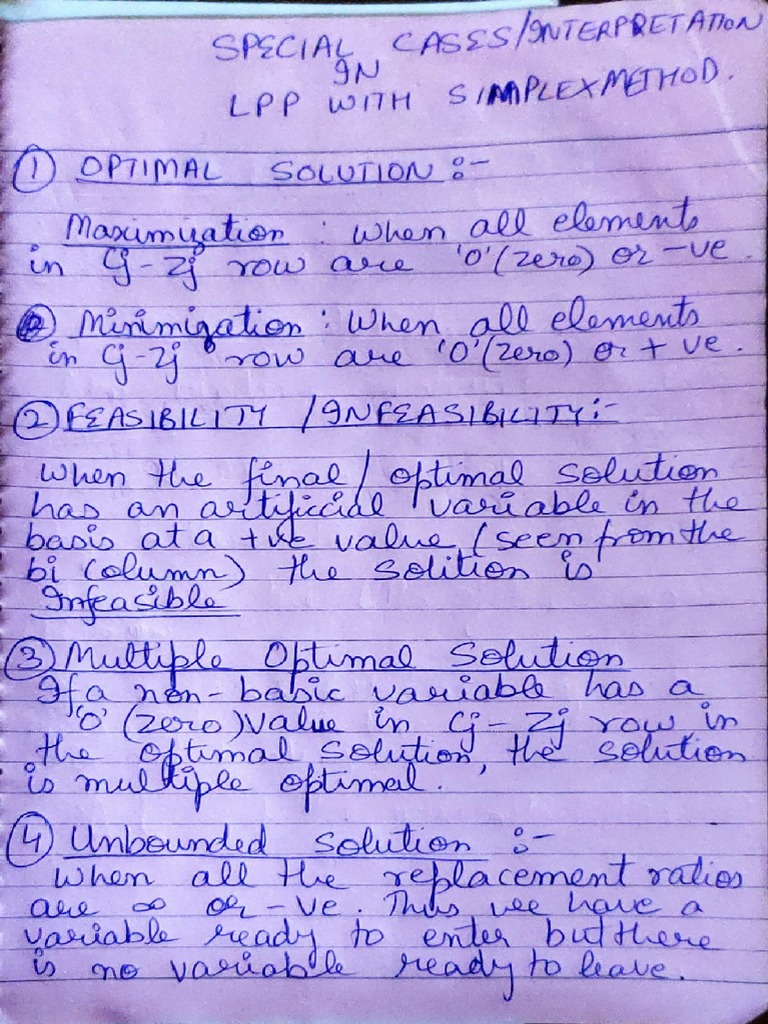 SPECIAL CASES/INTERPRETATION
IN
LPP WITH SIMPLEX METHOD.
① OPTIMAL SOLUTION :-
Maximization : When all elements
in Cj-Zj row are '0' (zero) or -ve.
Minimization : When all elements
in Cj-Zj row are '0' (zero) or + ve.
② FEASIBILITY /INFEASIBILITY:-
When the final / optimal solution
has an artificial variable in the
basis at a +ve value (seen from the
bi Column) the solition is
Infeasible
③ Multiple Optimal Solution
If a non-basic variable has a
'0' (zero) value in Cj-Zj row in
the optimal solution, the solution
is multiple optimal.
④ Unbounded solution :-
When all the replacement ratios
are ∞ or -ve. Thus we have a
variable ready to enter but there
is no variable ready to leave.